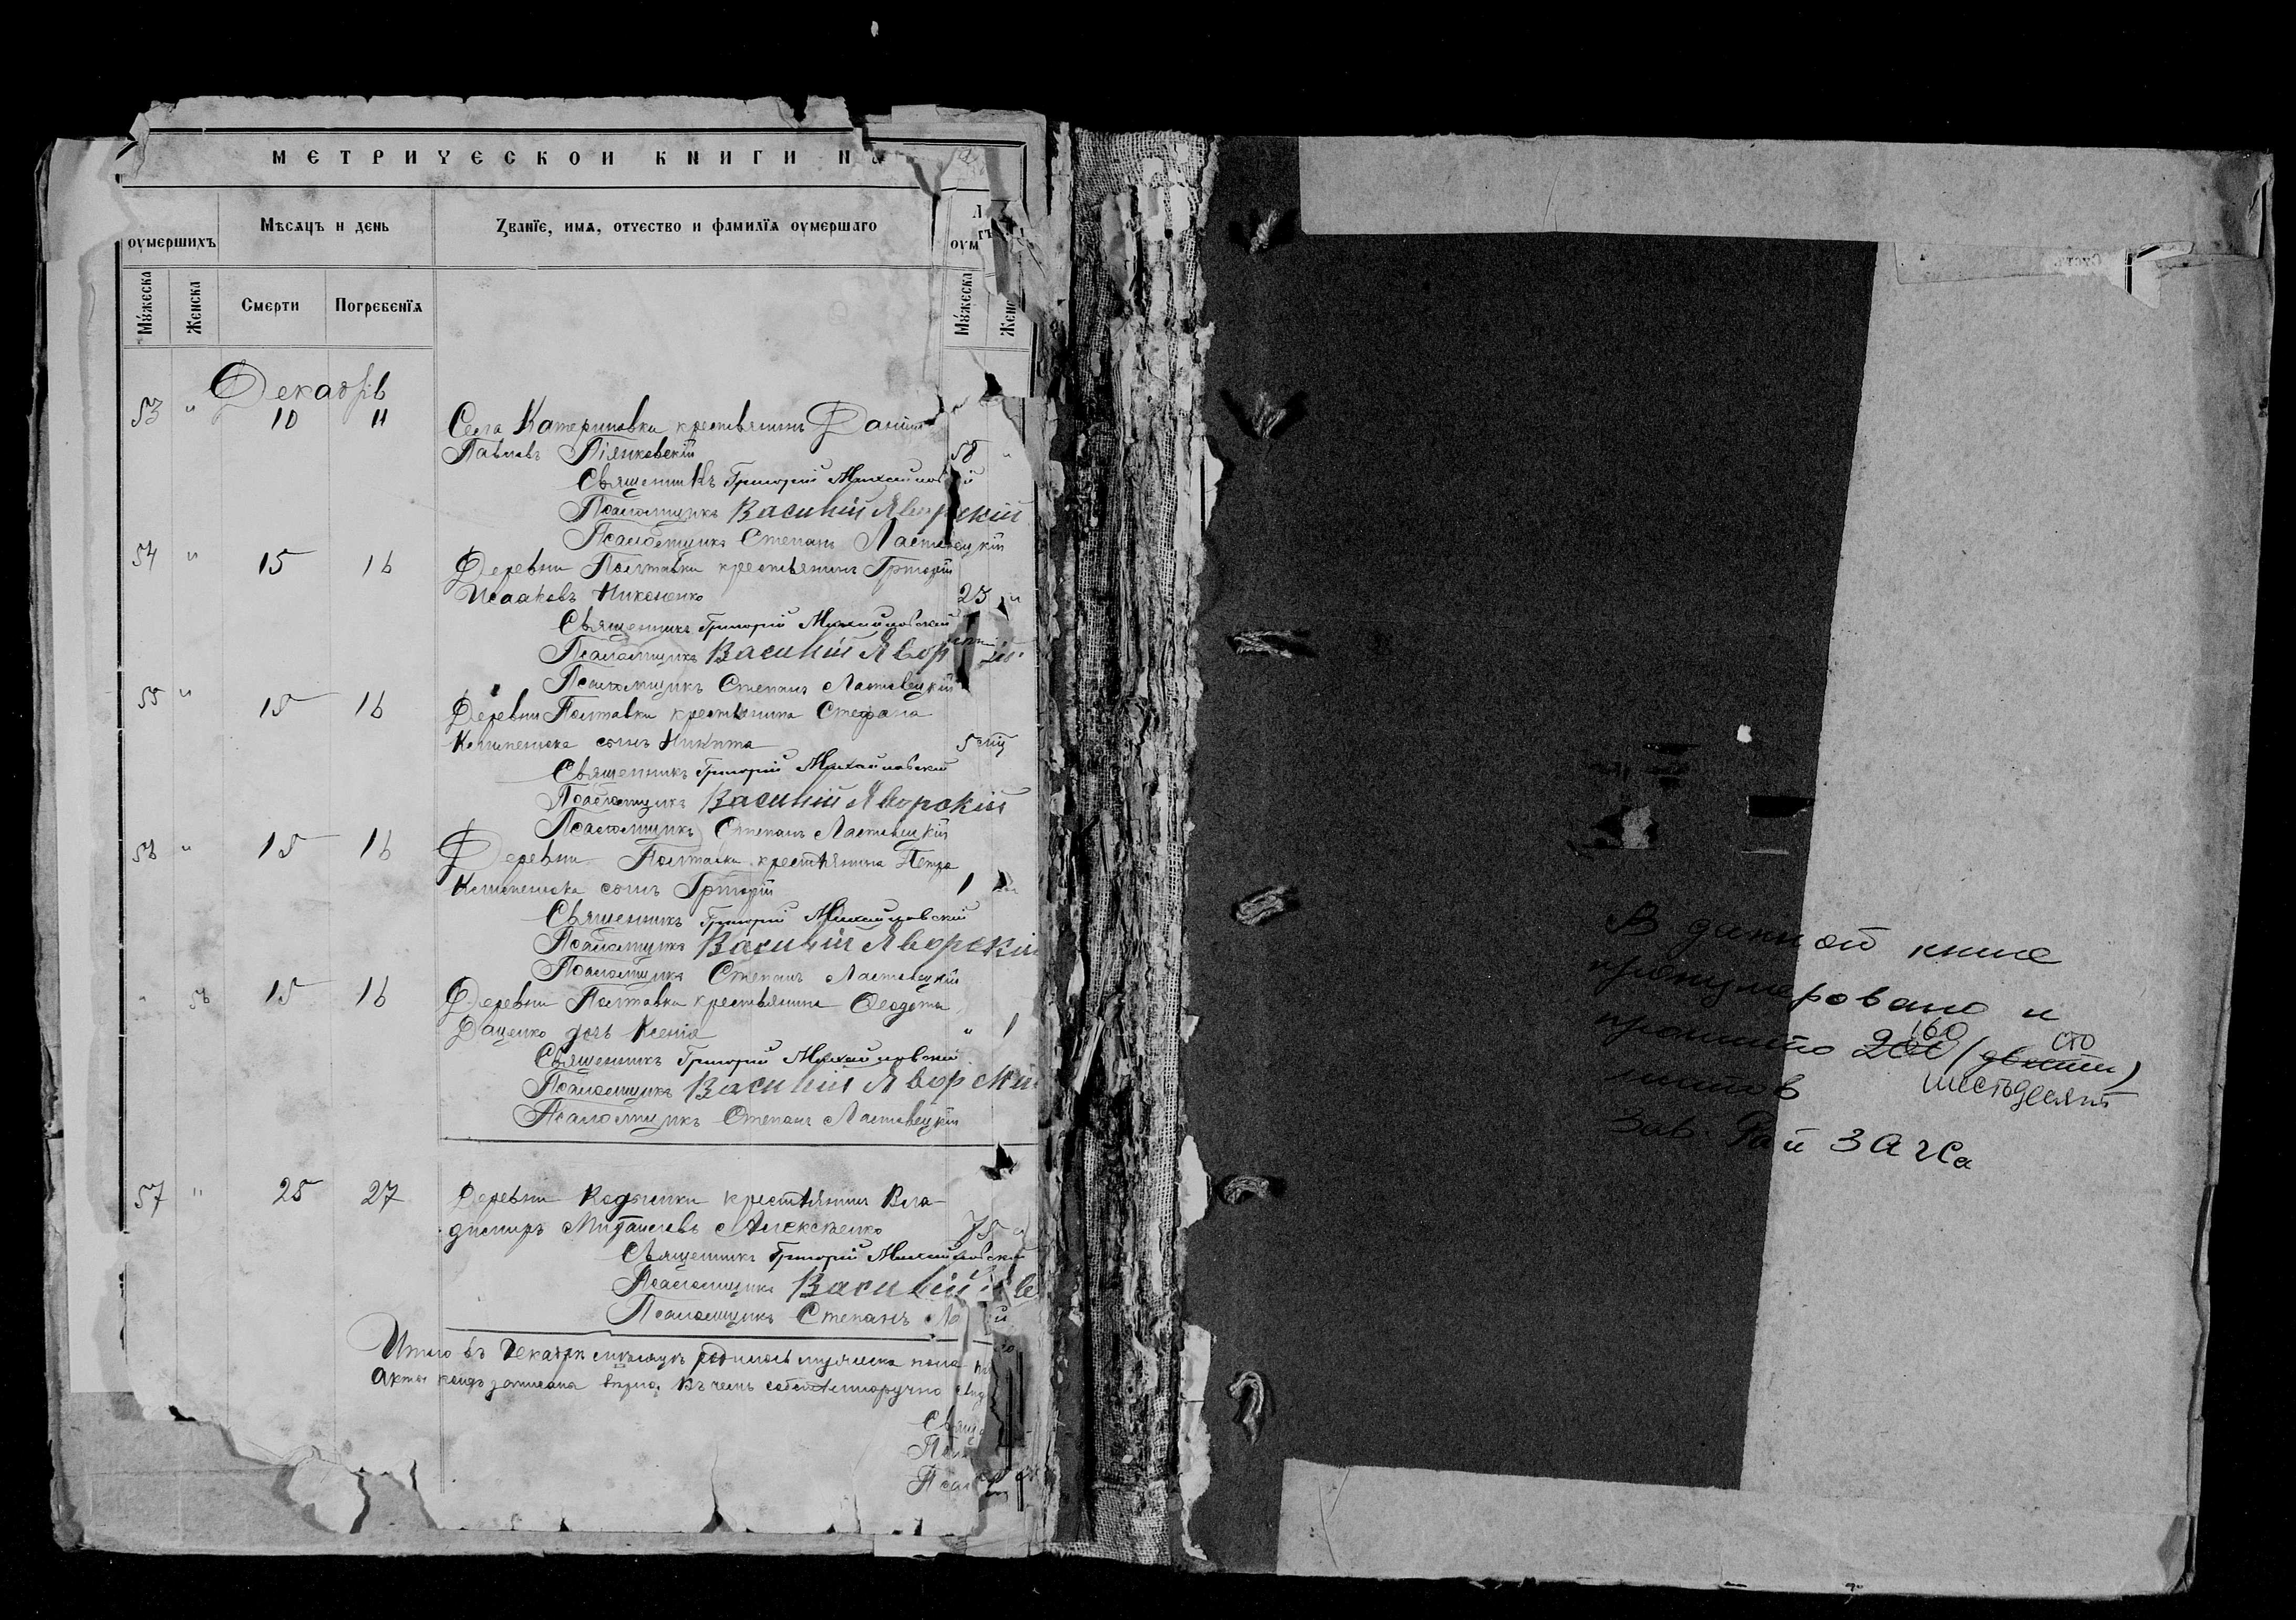 МЕТРИЧЕСКОЙ КНИГИ НА
оумершихъ
Мѣсяцъ и день
Званїе, имя, отчество и фамилїя оумершаго
Мужеска
Женска
Смерти
Погребенїя
Мужеска
Жен
Декабрь
53 " 10 11 Села Катериновки крестьянинъ Данiилъ
Павловъ 58 "
Священникъ Григорій Михайловскій
Псаломщикъ Василій Яворскій
Псаломщикъ Степанъ Ластовецкій
54 " 15 16 Деревни Полтавки крестьянинъ Григорій
Исааковъ Никоненко 25 "
Священникъ Григорій Михайловскій
Псаломщикъ Василій Яворскій
Псаломщикъ Степанъ Ластовецкій
55 " 15 16 Деревни Полтавки крестьянина Стефана
сынъ Никита 5
Священникъ Григорій Михайловскій
Псаломщикъ Василій Яворскій
Псаломщикъ Степанъ Ластовецкій
56 " 15 16 Деревни Полтавки крестьянина Петра
сынъ Григорій 1
Священникъ Григорій Михайловскій
Псаломщикъ Василій Яворскій
Псаломщикъ Степанъ Ластовецкій
" 56 15 16 Деревни Полтавки крестьянина Феодота
Даценко дочь Ксенія " 1
Священникъ Григорій Михайловскій
Псаломщикъ Василій Яворскій
Псаломщикъ Степанъ Ластовецкій
57 " 25 27 Деревни крестьянинъ Вла-
диміръ Алексѣенко 75
Священникъ Григорій Михайловскій
Псаломщикъ Василій
Псаломщикъ Степанъ
Итого въ Декабрѣ мѣсяцѣ мужеска пола
записана вѣрно, въ чемъ собственноручно
Свящ
Псал
В данной книге
пронумеровано и
160 сто
прошито 200 (двести)
листов шестьдесят
Зав. Рай ЗАГСа